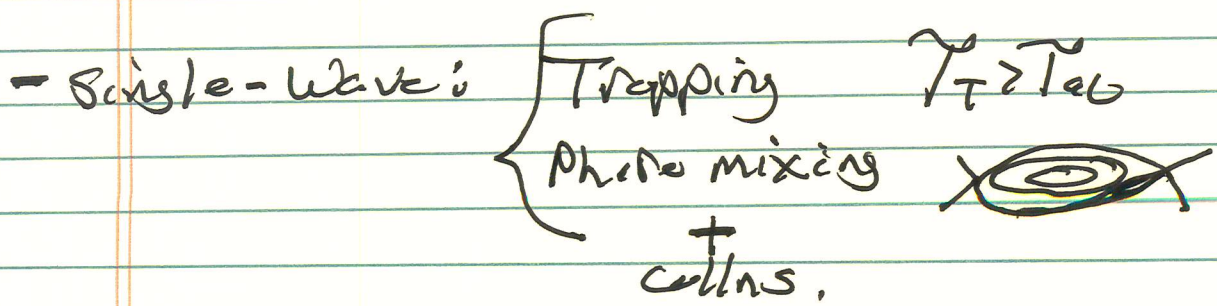 - Single-Wave: { Trapping τ_T > τ_ac
Phase mixing
+
collns.